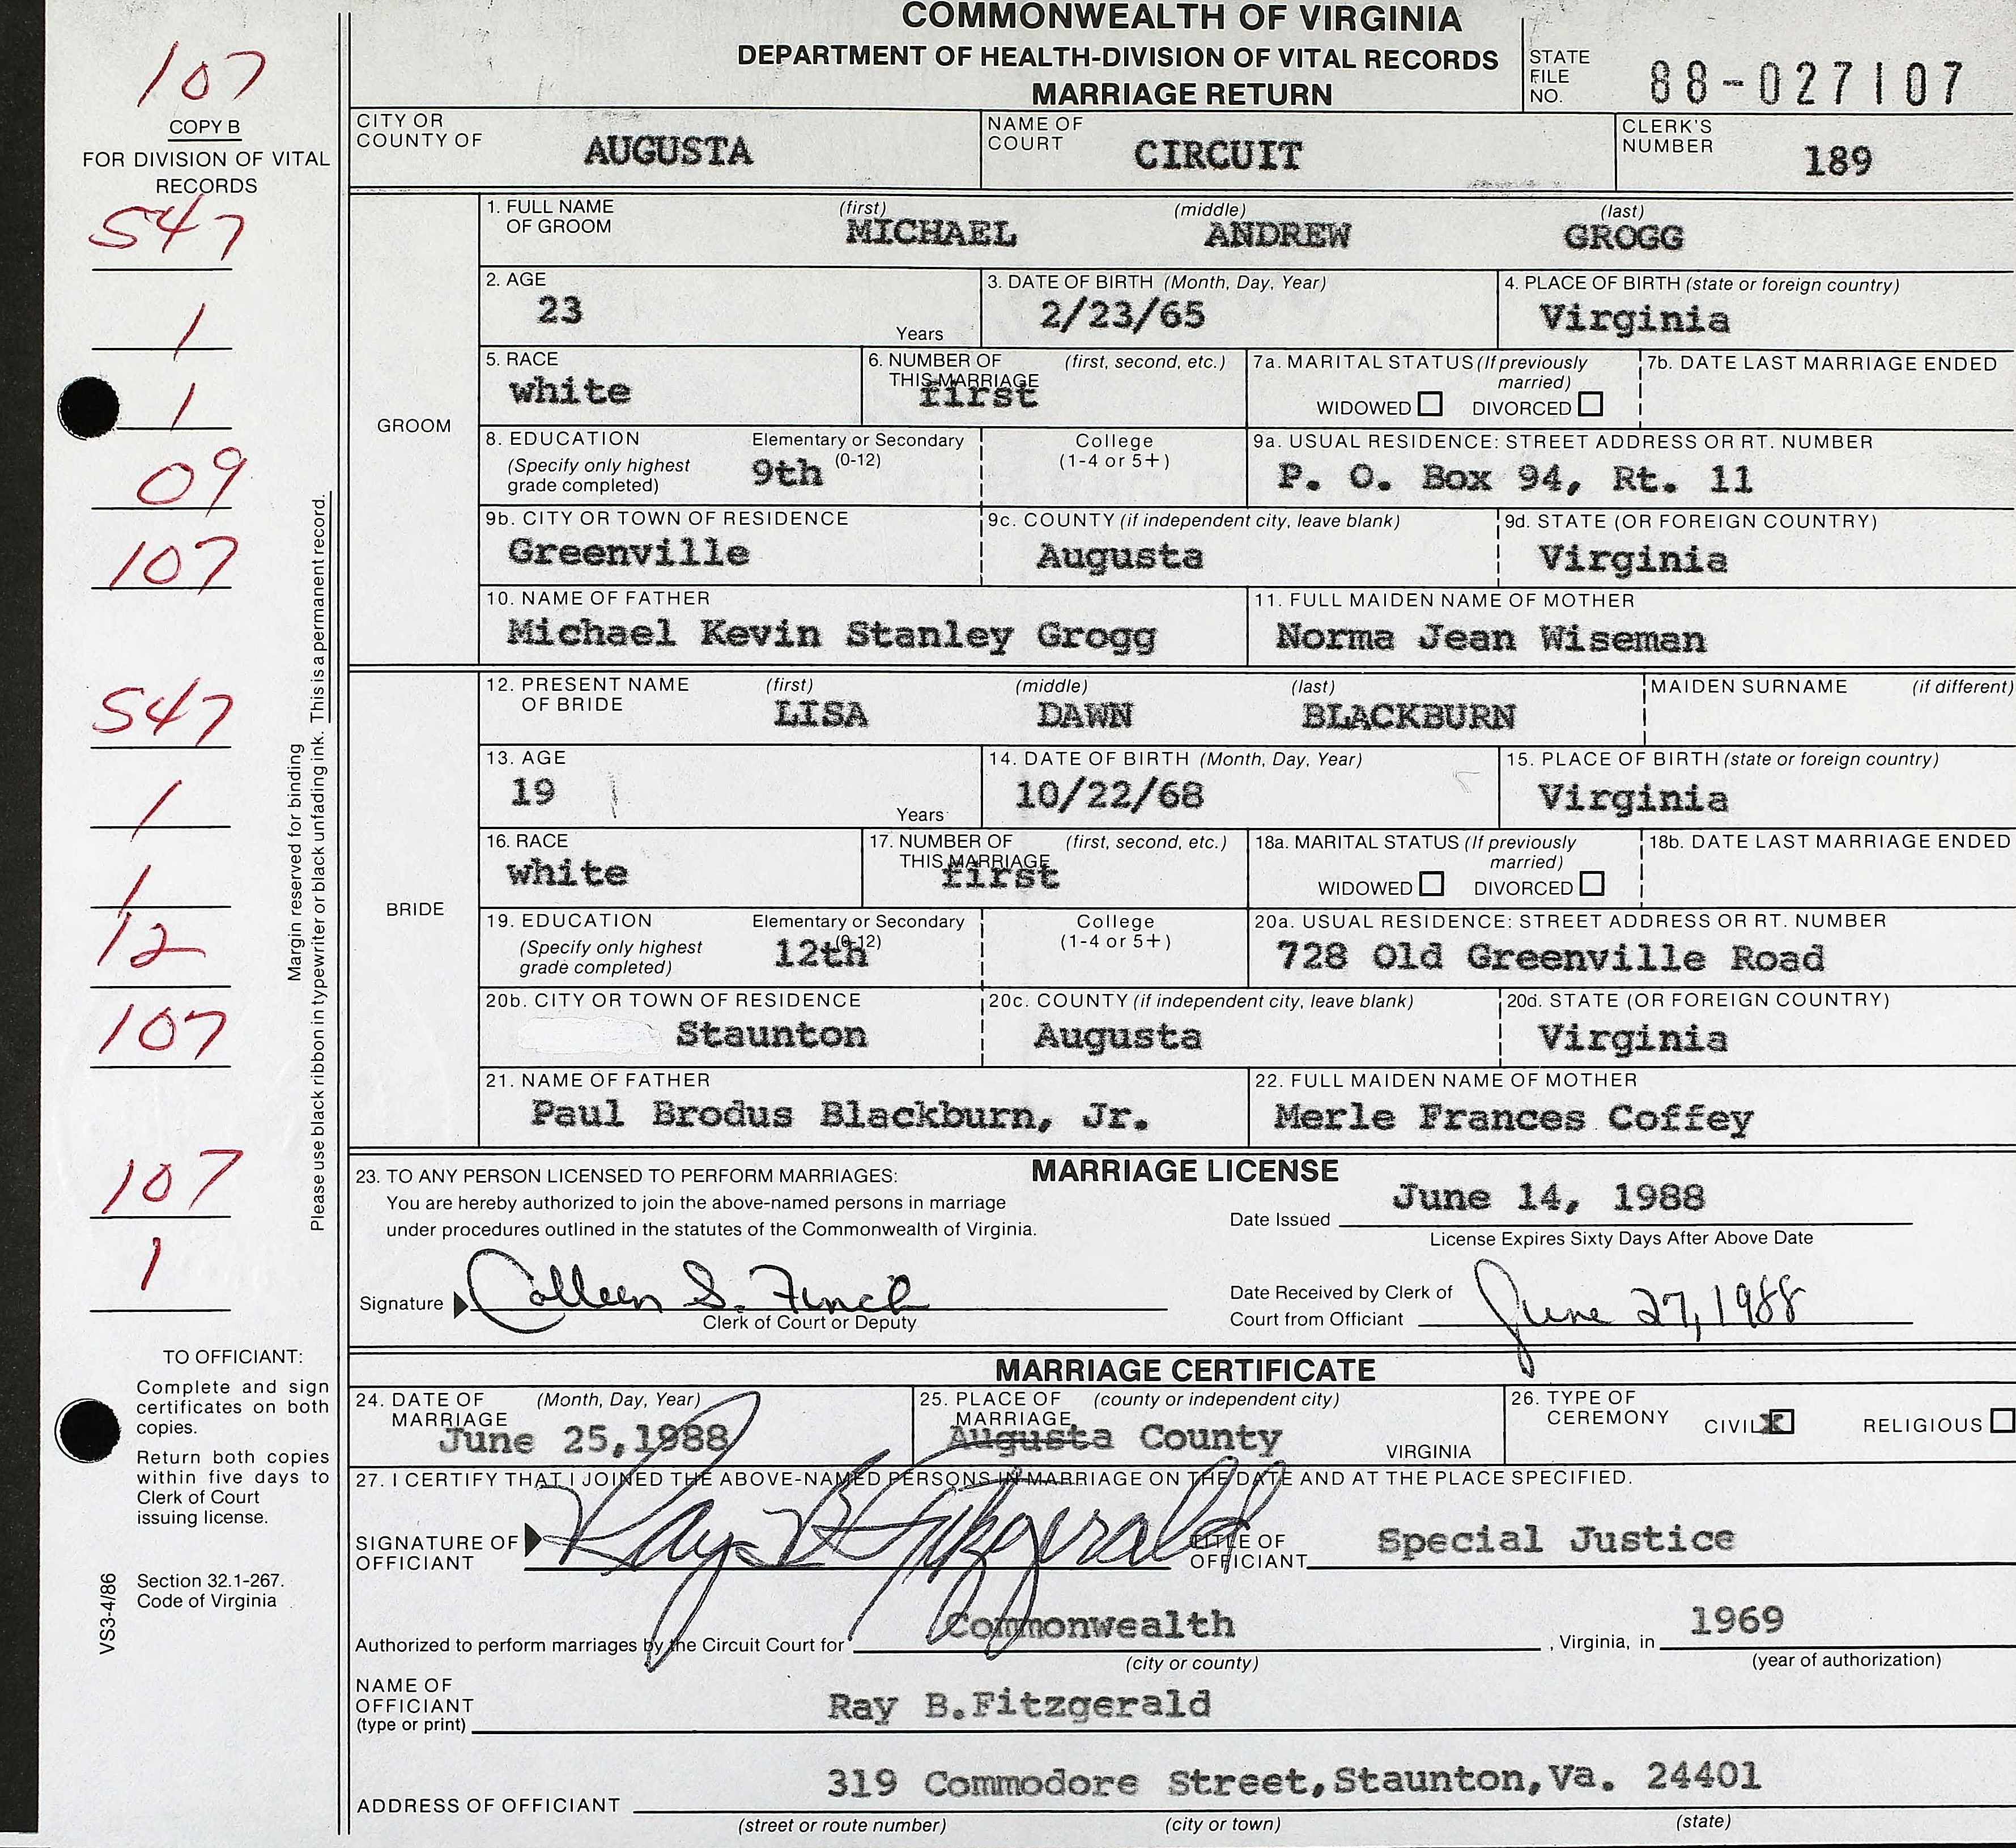 COMMONWEALTH OF VIRGINIA
DEPARTMENT OF HEALTH-DIVISION OF VITAL RECORDS
MARRIAGE RETURN
STATE FILE NO. 88-027107
107
COPY B
FOR DIVISION OF VITAL RECORDS
547
1
1
09
107
547
1
1
12
107
107
1
Margin reserved for binding
Please use black ribbon in typewriter or black unfading ink. This is a permanent record.
TO OFFICIANT:
Complete and sign
certificates on both
copies.
Return both copies
within five days to
Clerk of Court
issuing license.
Section 32.1-267.
Code of Virginia
VS3-4/86
CITY OR COUNTY OF AUGUSTA
NAME OF COURT CIRCUIT
CLERK'S NUMBER 189
GROOM
1. FULL NAME OF GROOM (first) MICHAEL (middle) ANDREW (last) GROGG
2. AGE 23 Years
3. DATE OF BIRTH (Month, Day, Year) 2/23/65
4. PLACE OF BIRTH (state or foreign country) Virginia
5. RACE white
6. NUMBER OF THIS MARRIAGE (first, second, etc.) first
7a. MARITAL STATUS (If previously married) WIDOWED DIVORCED
7b. DATE LAST MARRIAGE ENDED
8. EDUCATION (Specify only highest grade completed) Elementary or Secondary (0-12) 9th College (1-4 or 5+)
9a. USUAL RESIDENCE: STREET ADDRESS OR RT. NUMBER P. O. Box 94, Rt. 11
9b. CITY OR TOWN OF RESIDENCE Greenville
9c. COUNTY (if independent city, leave blank) Augusta
9d. STATE (OR FOREIGN COUNTRY) Virginia
10. NAME OF FATHER Michael Kevin Stanley Grogg
11. FULL MAIDEN NAME OF MOTHER Norma Jean Wiseman
BRIDE
12. PRESENT NAME OF BRIDE (first) LISA (middle) DAWN (last) BLACKBURN MAIDEN SURNAME (if different)
13. AGE 19 Years
14. DATE OF BIRTH (Month, Day, Year) 10/22/68
15. PLACE OF BIRTH (state or foreign country) Virginia
16. RACE white
17. NUMBER OF THIS MARRIAGE (first, second, etc.) first
18a. MARITAL STATUS (If previously married) WIDOWED DIVORCED
18b. DATE LAST MARRIAGE ENDED
19. EDUCATION (Specify only highest grade completed) Elementary or Secondary (0-12) 12th College (1-4 or 5+)
20a. USUAL RESIDENCE: STREET ADDRESS OR RT. NUMBER 728 Old Greenville Road
20b. CITY OR TOWN OF RESIDENCE Staunton
20c. COUNTY (if independent city, leave blank) Augusta
20d. STATE (OR FOREIGN COUNTRY) Virginia
21. NAME OF FATHER Paul Brodus Blackburn, Jr.
22. FULL MAIDEN NAME OF MOTHER Merle Frances Coffey
MARRIAGE LICENSE
23. TO ANY PERSON LICENSED TO PERFORM MARRIAGES:
You are hereby authorized to join the above-named persons in marriage
under procedures outlined in the statutes of the Commonwealth of Virginia.
Date Issued June 14, 1988
License Expires Sixty Days After Above Date
Signature Colleen S. Finch
Clerk of Court or Deputy
Date Received by Clerk of Court from Officiant June 27, 1988
MARRIAGE CERTIFICATE
24. DATE OF MARRIAGE (Month, Day, Year) June 25,1988
25. PLACE OF MARRIAGE (county or independent city) Augusta County VIRGINIA
26. TYPE OF CEREMONY CIVIL X RELIGIOUS
27. I CERTIFY THAT I JOINED THE ABOVE-NAMED PERSONS IN MARRIAGE ON THE DATE AND AT THE PLACE SPECIFIED.
SIGNATURE OF OFFICIANT Ray B Fitzgerald TITLE OF OFFICIANT Special Justice
Authorized to perform marriages by the Circuit Court for Commonwealth , Virginia, in 1969
(city or county) (year of authorization)
NAME OF OFFICIANT (type or print) Ray B.Fitzgerald
ADDRESS OF OFFICIANT 319 Commodore Street,Staunton,Va. 24401
(street or route number) (city or town) (state)